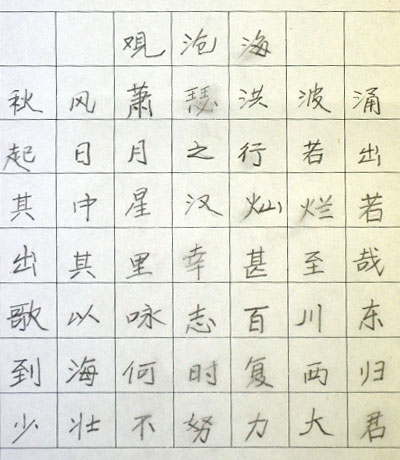 观沧海
秋风萧瑟洪波涌
起日月之行若出
其中星汉灿烂若
出其里幸甚至哉
歌以咏志百川东
到海何时复西归
少壮不努力大君